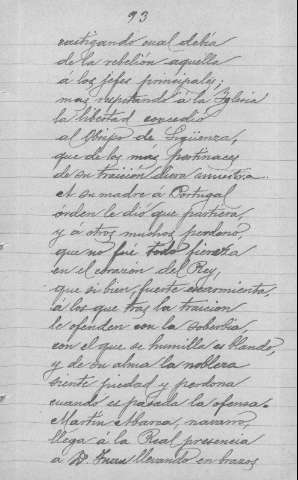 93
castigando cual debia
de la rebelión aquella
á los jefes principales;
mas respetando á la Iglesia
la libertad concedió
al Obispo de Sigüenza,
que de los más pertinaces
de su traición diera muestra.
A su madre á Portugal
órden le dió que partiera,
y á otros muchos perdonó,
que no fué todo fiereza
en el corazón del Rey,
que si bien, fuerte escarmienta,
á los que tras la traicion
le ofenden con la soberbia,
con el que se humilla es blando,
y de su alma la nobleza
siente piedad y perdona
cuando es pasada la ofensa.
Martin Abarca, navarro,
llega á la Real presencia
a D. Juan llevando en brazos